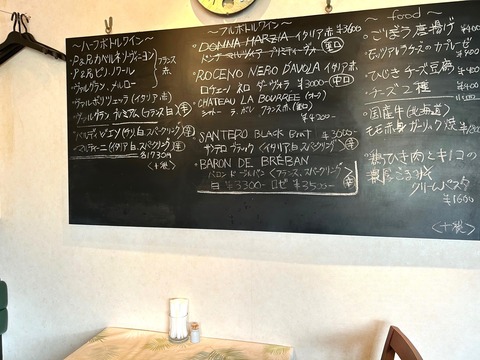 〜ハーフボトルワイン〜
・P&P カベルネ・ソヴィニヨン フランス
・P&P ピノ・ノワール 赤
・ヴァルグラン、メルロー
・ヴァルポリッチェラ (イタリア、赤)
・ヴァルグラン プレミアム (フランス 白)
(イタリア 白 スパークリング)
・マルティーニ (イタリア 白 スパークリング)
各1730円
(+税)
〜フルボトルワイン〜
・DONNA MARZIA イタリア 赤 ¥3600
・ROCENO NERO D'AVOLA イタリア 赤
ロチェーノ ネロ ダーヴォラ ¥3000-
・CHATEAU LA BOURREE
フランス
¥4200-
SANTERO Black Brut ¥3000-
サンテロ ブラック (イタリア 白 スパークリング)
・BARON DE BRÉBAN
バロン ド ブルバン (フランス、スパークリング)
白 ¥3300- ロゼ ¥3500-
〜food〜
・ごぼう唐揚げ ¥400
・モッツァレラチーズのカプレーゼ
・ひじきチーズ豆腐 ¥400
・チーズ二種 ¥400
・国産牛(北海道)
モモ赤身ガーリック焼
・鶏ひき肉とキノコの
クリームパスタ
¥1600
(+税)